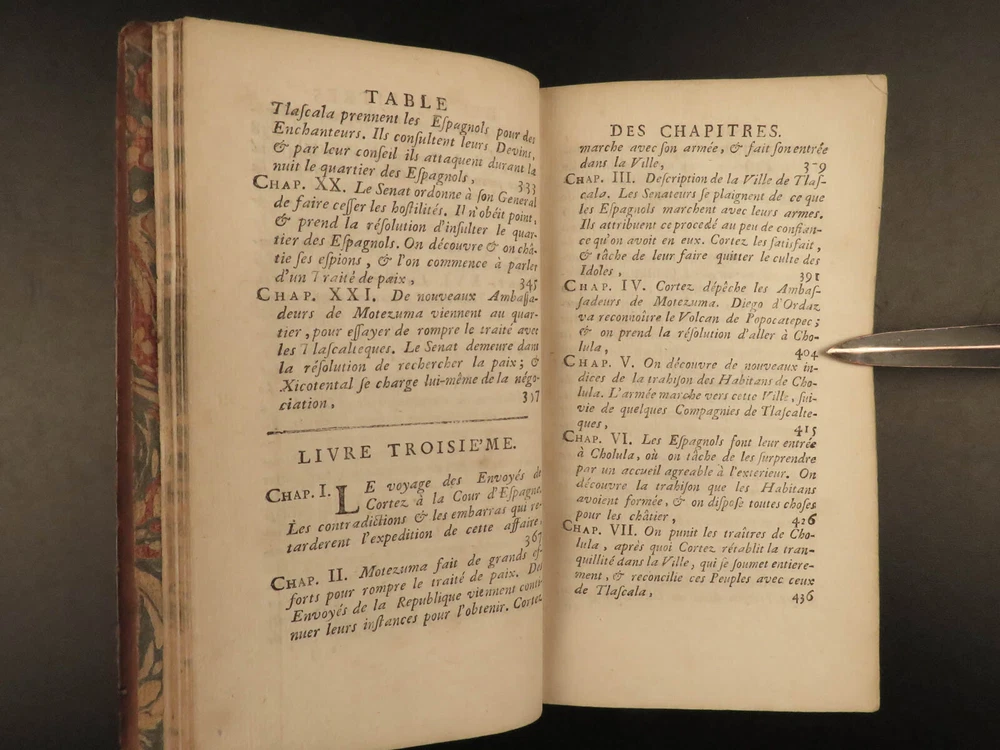 TABLE
Tlaſcala prennent les Eſpagnols pour des
Enchanteurs. Ils conſultent leurs Devins,
& par leur conſeil ils attaquent durant la
nuit le quartier des Eſpagnols, 333
CHAP. XX. Le Senat ordonne à ſon General
de faire ceſſer les hoſtilités. Il n'obéit point,
& prend la réſolution d'inſulter le quar-
tier des Eſpagnols. On découvre & on châ-
tie ſes eſpions, & l'on commence à parler
d'un Traité de paix, 345
CHAP. XXI. De nouveaux Ambaſſa-
deurs de Motezuma viennent au quar-
tier, pour eſſayer de rompre le traité avec
les Tlaſcalteques. Le Senat demeure dans
la réſolution de rechercher la paix; &
Xicotental ſe charge lui-même de la négo-
ciation, 357
LIVRE TROISIE'ME.
CHAP. I. LE voyage des Envoyés de
Cortez à la Cour d'Eſpagne.
Les contradictions & les embarras qui re-
tarderent l'expedition de cette affaire, 367
CHAP. II. Motezuma fait de grands ef-
forts pour rompre le traité de paix. Des
Envoyés de la Republique viennent conti-
nuer leurs inſtances pour l'obtenir. Cortez
DES CHAPITRES.
marche avec ſon armée, & fait ſon entrée
dans la Ville, 379
CHAP. III. Deſcription de la Ville de Tlaſ-
cala. Les Senateurs ſe plaignent de ce que
les Eſpagnols marchent avec leurs armes.
Ils attribuent ce procedé au peu de confian-
ce qu'on avoit en eux. Cortez les ſatisfait,
& tâche de leur faire quitter le culte des
Idoles, 391
CHAP. IV. Cortez dépêche les Ambaſ-
ſadeurs de Motezuma. Diego d'Ordaz
va reconnoître le Volcan de Popocatepec;
& on prend la réſolution d'aller à Cho-
lula, 404
CHAP. V. On découvre de nouveaux in-
dices de la trahiſon des Habitans de Cho-
lula. L'armée marche vers cette Ville, ſui-
vie de quelques Compagnies de Tlaſcalte-
ques, 415
CHAP. VI. Les Eſpagnols font leur entrée
à Cholula, où on tâche de les ſurprendre
par un accueil agreable à l'exterieur. On
découvre la trahiſon que les Habitans
avoient formée, & on diſpoſe toutes choſes
pour les châtier, 426
CHAP. VII. On punit les traîtres de Cho-
lula, après quoi Cortez rétablit la tran-
quillité dans la Ville, qui ſe ſoumet entiere-
ment, & reconcilie ces Peuples avec ceux
de Tlaſcala, 436